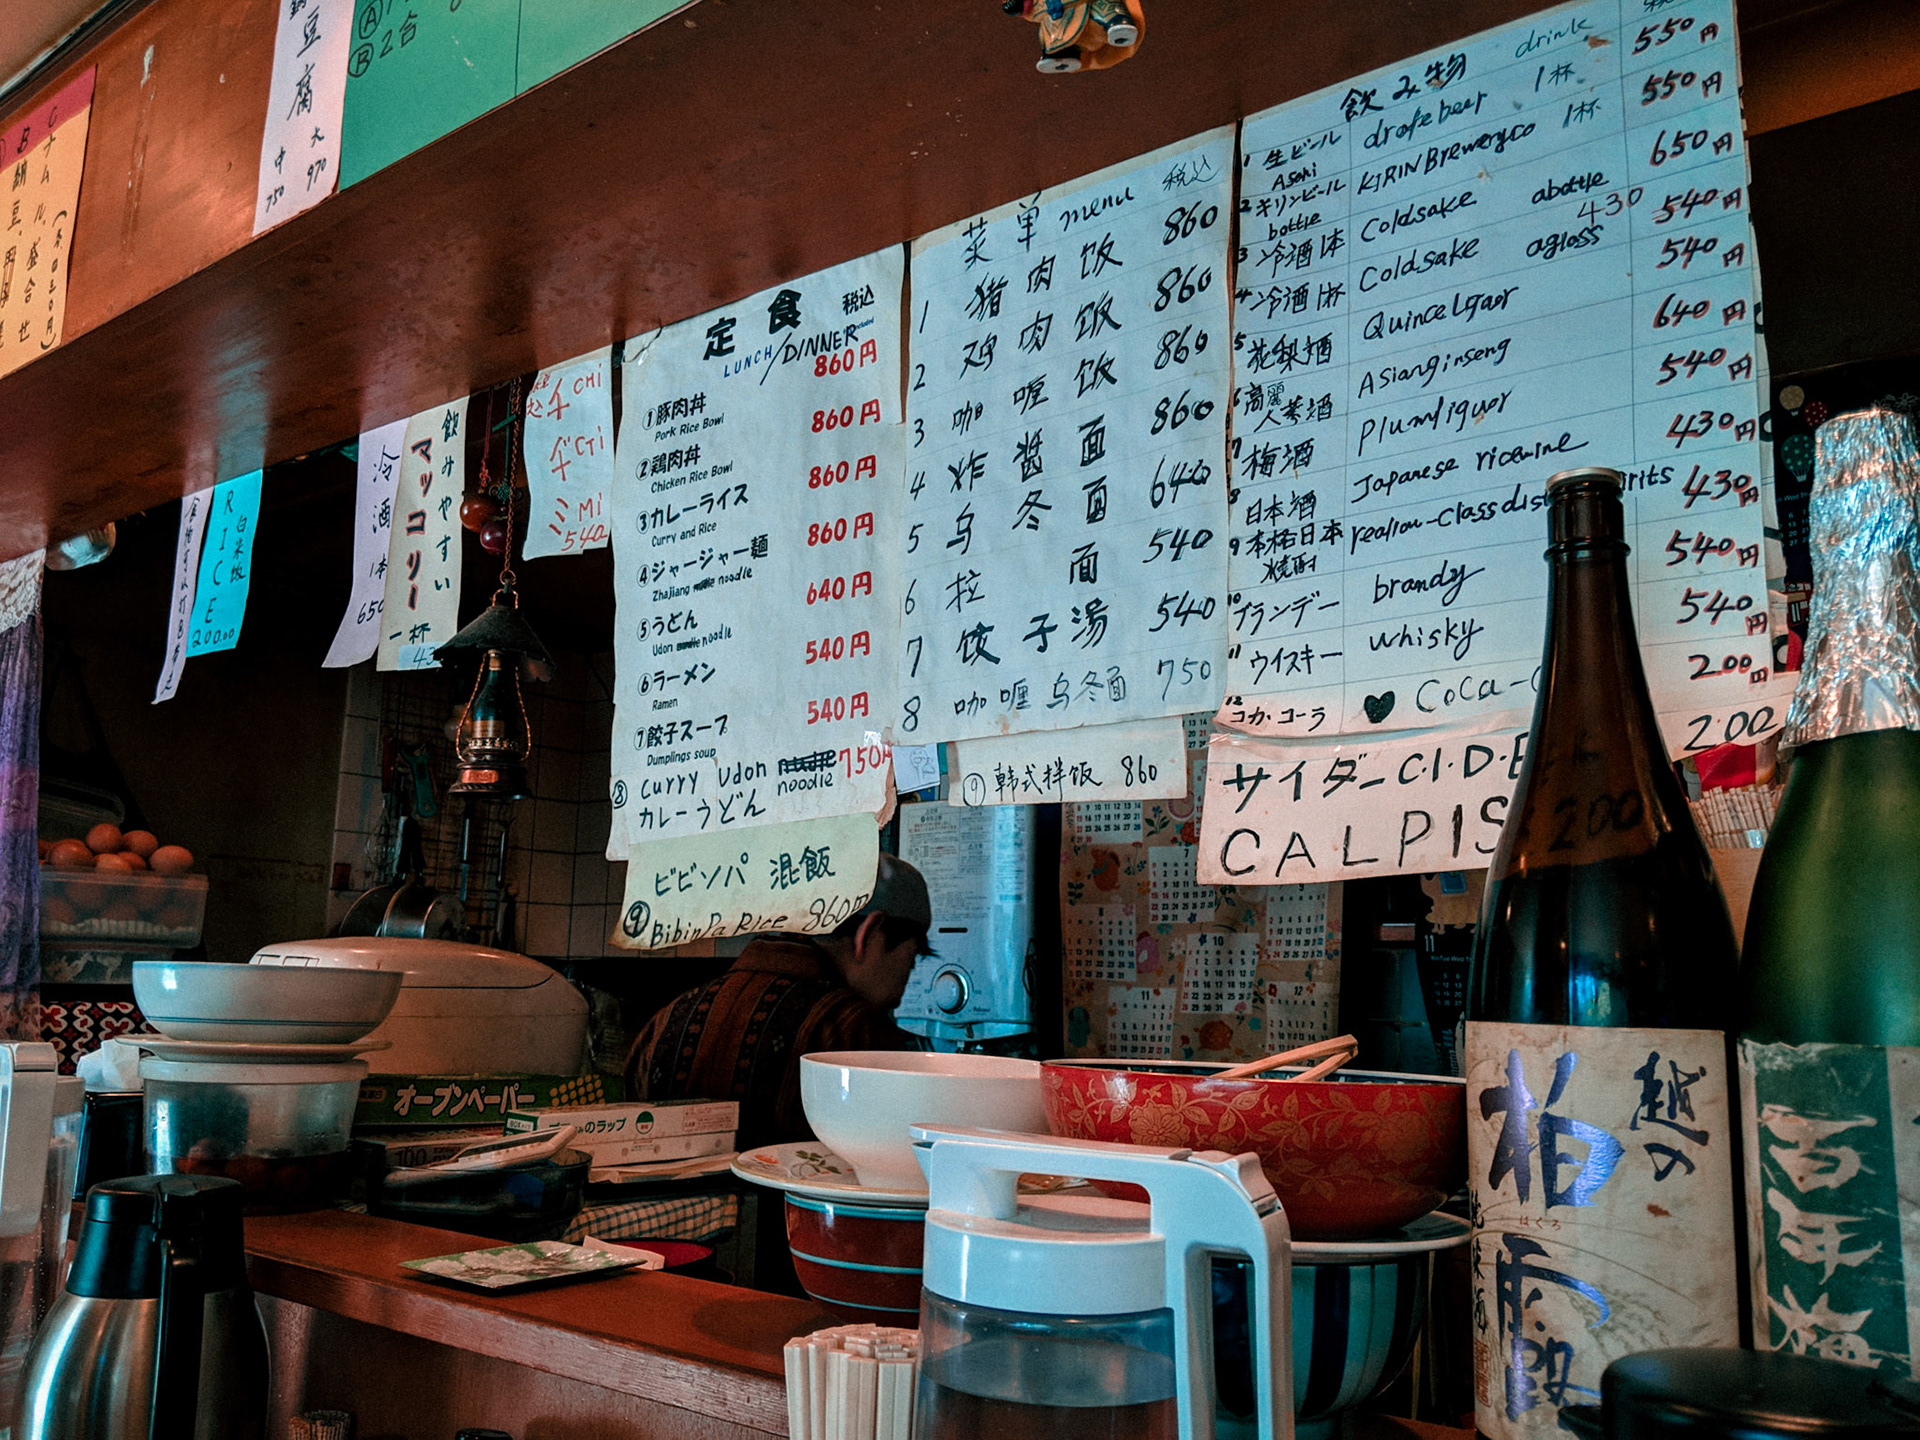 豆腐
大 970
中 750
Ⓐ
Ⓑ 2合
ナムル盛合せ
RICE
白米飯
200.00
冷酒 1本 650
飲みやすい
マッコリー
一杯
チ CHI
ヂ CTI
ミ MI
540
定食 税込
LUNCH/DINNER
860円
①豚肉丼
Pork Rice Bowl
860円
②鶏肉丼
Chicken Rice Bowl
860円
③カレーライス
Curry and Rice
860円
④ジャージャー麺
Zhajiang noodle
640円
⑤うどん
Udon noodle
540円
⑥ラーメン
Ramen
540円
⑦餃子スープ
Dumplings soup
⑧ Curry Udon noodle 750円
カレーうどん
ビビンパ 混飯
⑨ BibinPa Rice 860円
菜单 menu 税込
1 猪肉饭 860
2 鸡肉饭 860
3 咖喱饭 860
4 炸酱面 860
5 乌冬面 640
6 拉面 540
7 饺子汤 540
8 咖喱乌冬面 750
⑨ 韩式拌饭 860
飲み物 drink
1 生ビール Asahi drafe beer 1杯 550円
2 キリンビール bottle KIRIN Brewery co 1杯 550円
3 冷酒1本 Coldsake abottle 650円
4 冷酒1杯 Coldsake aglass 430 540円
5 花梨酒 Quince Lqaor 540円
6 高麗人参酒 Asianginseng 640円
7 梅酒 Plumliquor 540円
8 日本酒 Japanese ricewine 430円
9 本格日本焼酎 430円
10 ブランデー brandy 540円
11 ウイスキー whisky 540円
12 コカ・コーラ ♥ Coca- 200円
サイダー C.I.D.E 200
CALPIS
オープンペーパー
のラップ
100
越の
柏露
はくろ
純米酒
百年梅